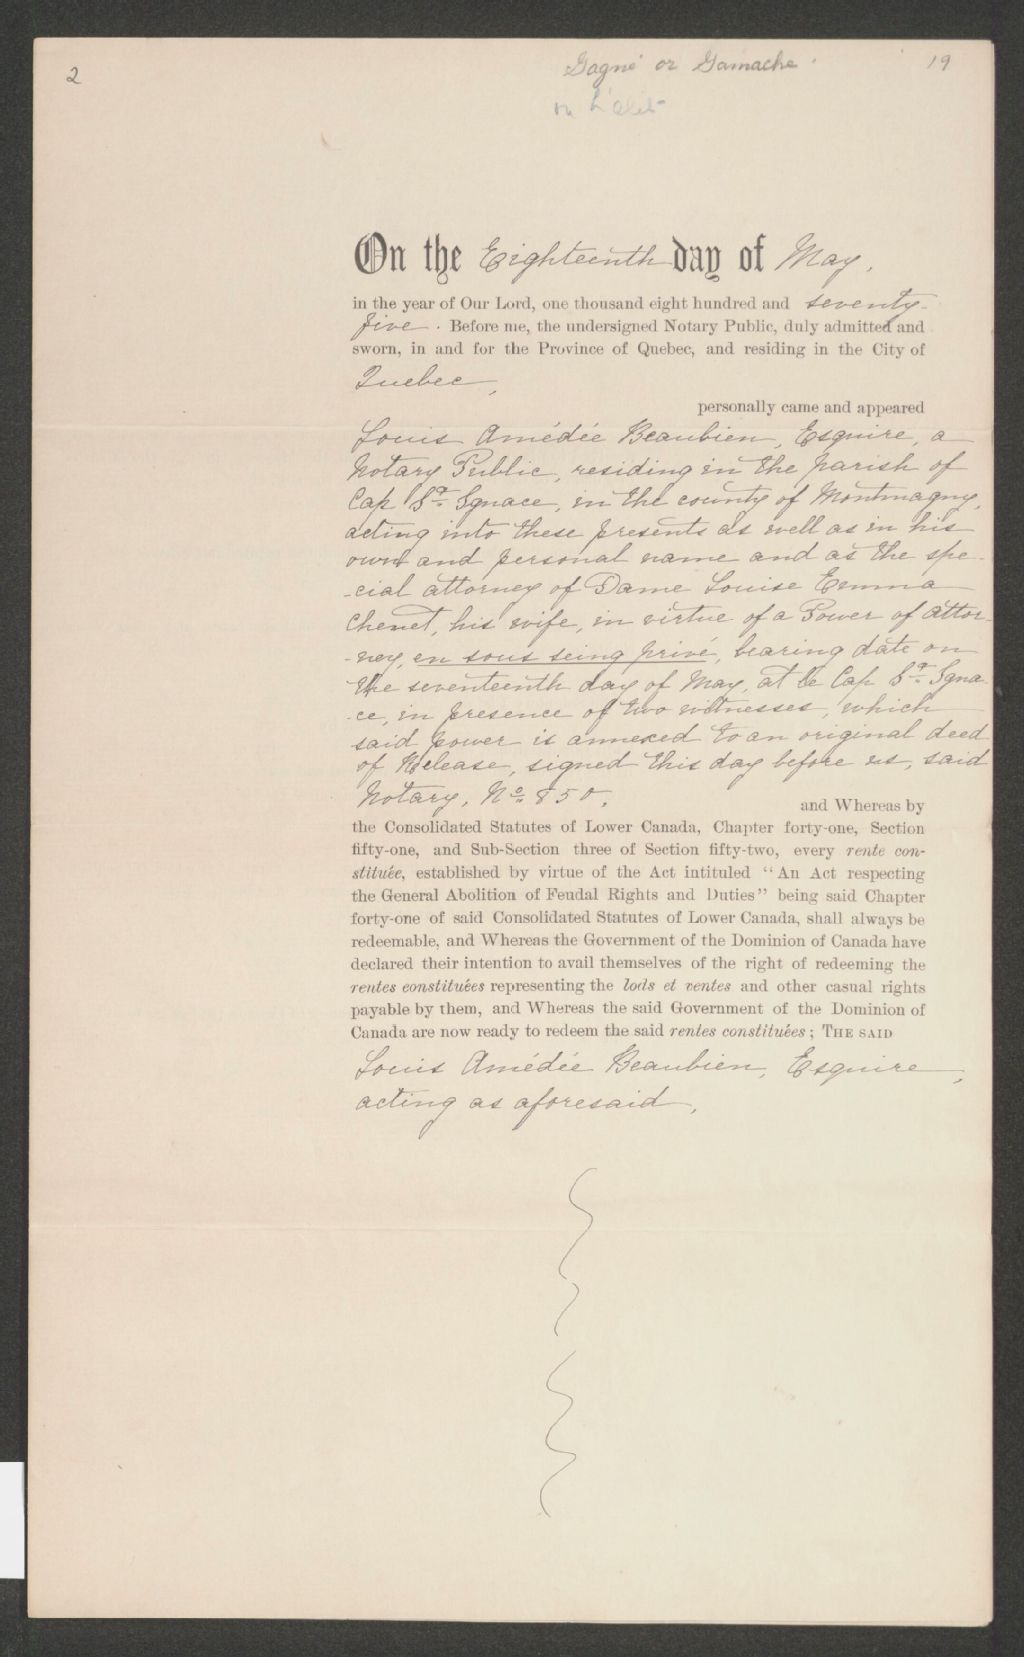 2
Gagné or Gamache
19
On the Eighteenth day of May,
in the year of Our Lord, one thousand eight hundred and seventy-
five. Before me, the undersigned Notary Public, duly admitted and
sworn, in and for the Province of Quebec, and residing in the City of
Quebec,
personally came and appeared
Louis Amédée Beaubien, Esquire, a
Notary Public, residing in the parish of
Cap St. Ignace, in the county of Montmagny,
acting into these presents as well as in his
own and personal name and as the spe-
-cial attorney of Dame Louise Emma
Chenet, his wife, in virtue of a Power of attor-
-ney, en sous seing privé, bearing date on
the seventeenth day of May, at le Cap St. Igna-
-ce, in presence of two witnesses, which
said power is annexed to an original deed
of Release, signed this day before us, said
Notary, No. 850.
and Whereas by
the Consolidated Statutes of Lower Canada, Chapter forty-one, Section
fifty-one, and Sub-Section three of Section fifty-two, every rente con-
stituée, established by virtue of the Act intituled "An Act respecting
the General Abolition of Feudal Rights and Duties" being said Chapter
forty-one of said Consolidated Statutes of Lower Canada, shall always be
redeemable, and Whereas the Government of the Dominion of Canada have
declared their intention to avail themselves of the right of redeeming the
rentes constituées representing the lods et ventes and other casual rights
payable by them, and Whereas the said Government of the Dominion of
Canada are now ready to redeem the said rentes constituées; THE SAID
Louis Amédée Beaubien, Esquire,
acting as aforesaid,